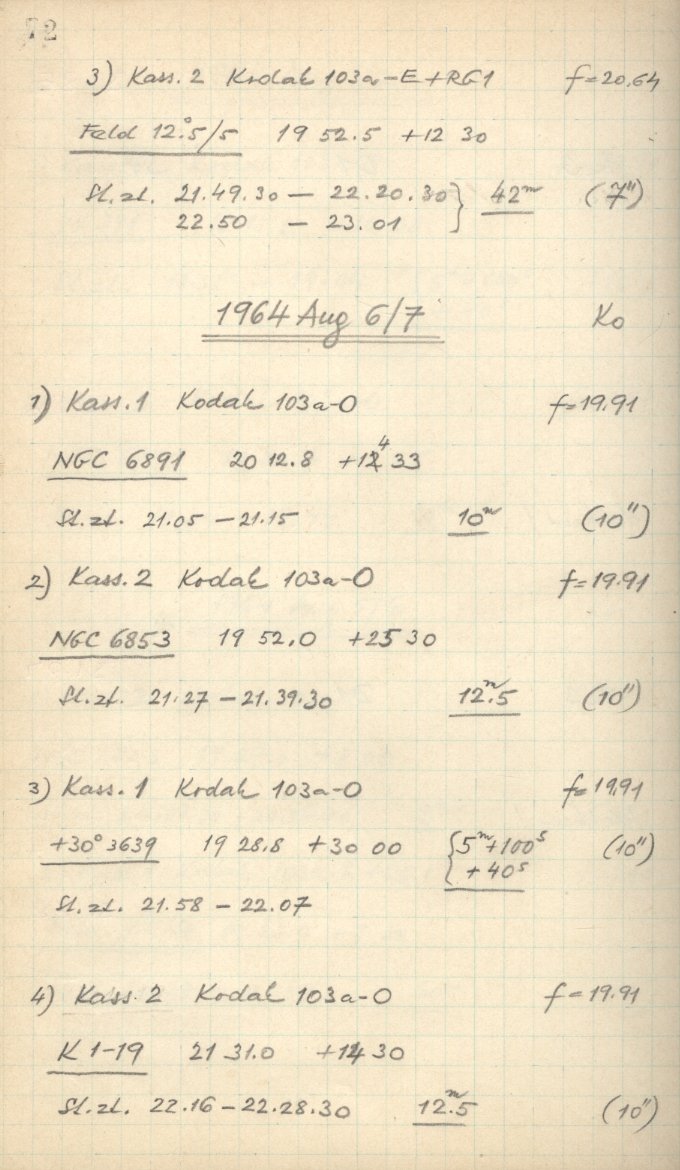 72
3) Kass. 2 Kodak 103a-E+RG1 f=20.64
Feld 12°.5/5 19 52.5 +12 30
St.zt. 21.49.30 — 22.20.30 } 42ᵐ (7")
22.50 — 23.01
1964 Aug 6/7 Ko
1) Kass. 1 Kodak 103a-O f=19.91
NGC 6891 20 12.8 +124 33
St.zt. 21.05 — 21.15 10ᵐ (10")
2) Kass. 2 Kodak 103a-O f=19.91
NGC 6853 19 52.0 +25 30
St.zt. 21.27 — 21.39.30 12ᵐ.5 (10")
3) Kass. 1 Kodak 103a-O f=19.91
+30° 3639 19 28.8 +30 00 { 5ᵐ+100ˢ (10")
+ 40ˢ
St.zt. 21.58 — 22.07
4) Kass. 2 Kodak 103a-O f=19.91
K 1-19 21 31.0 +14 30
St.zt. 22.16 — 22.28.30 12ᵐ.5 (10")